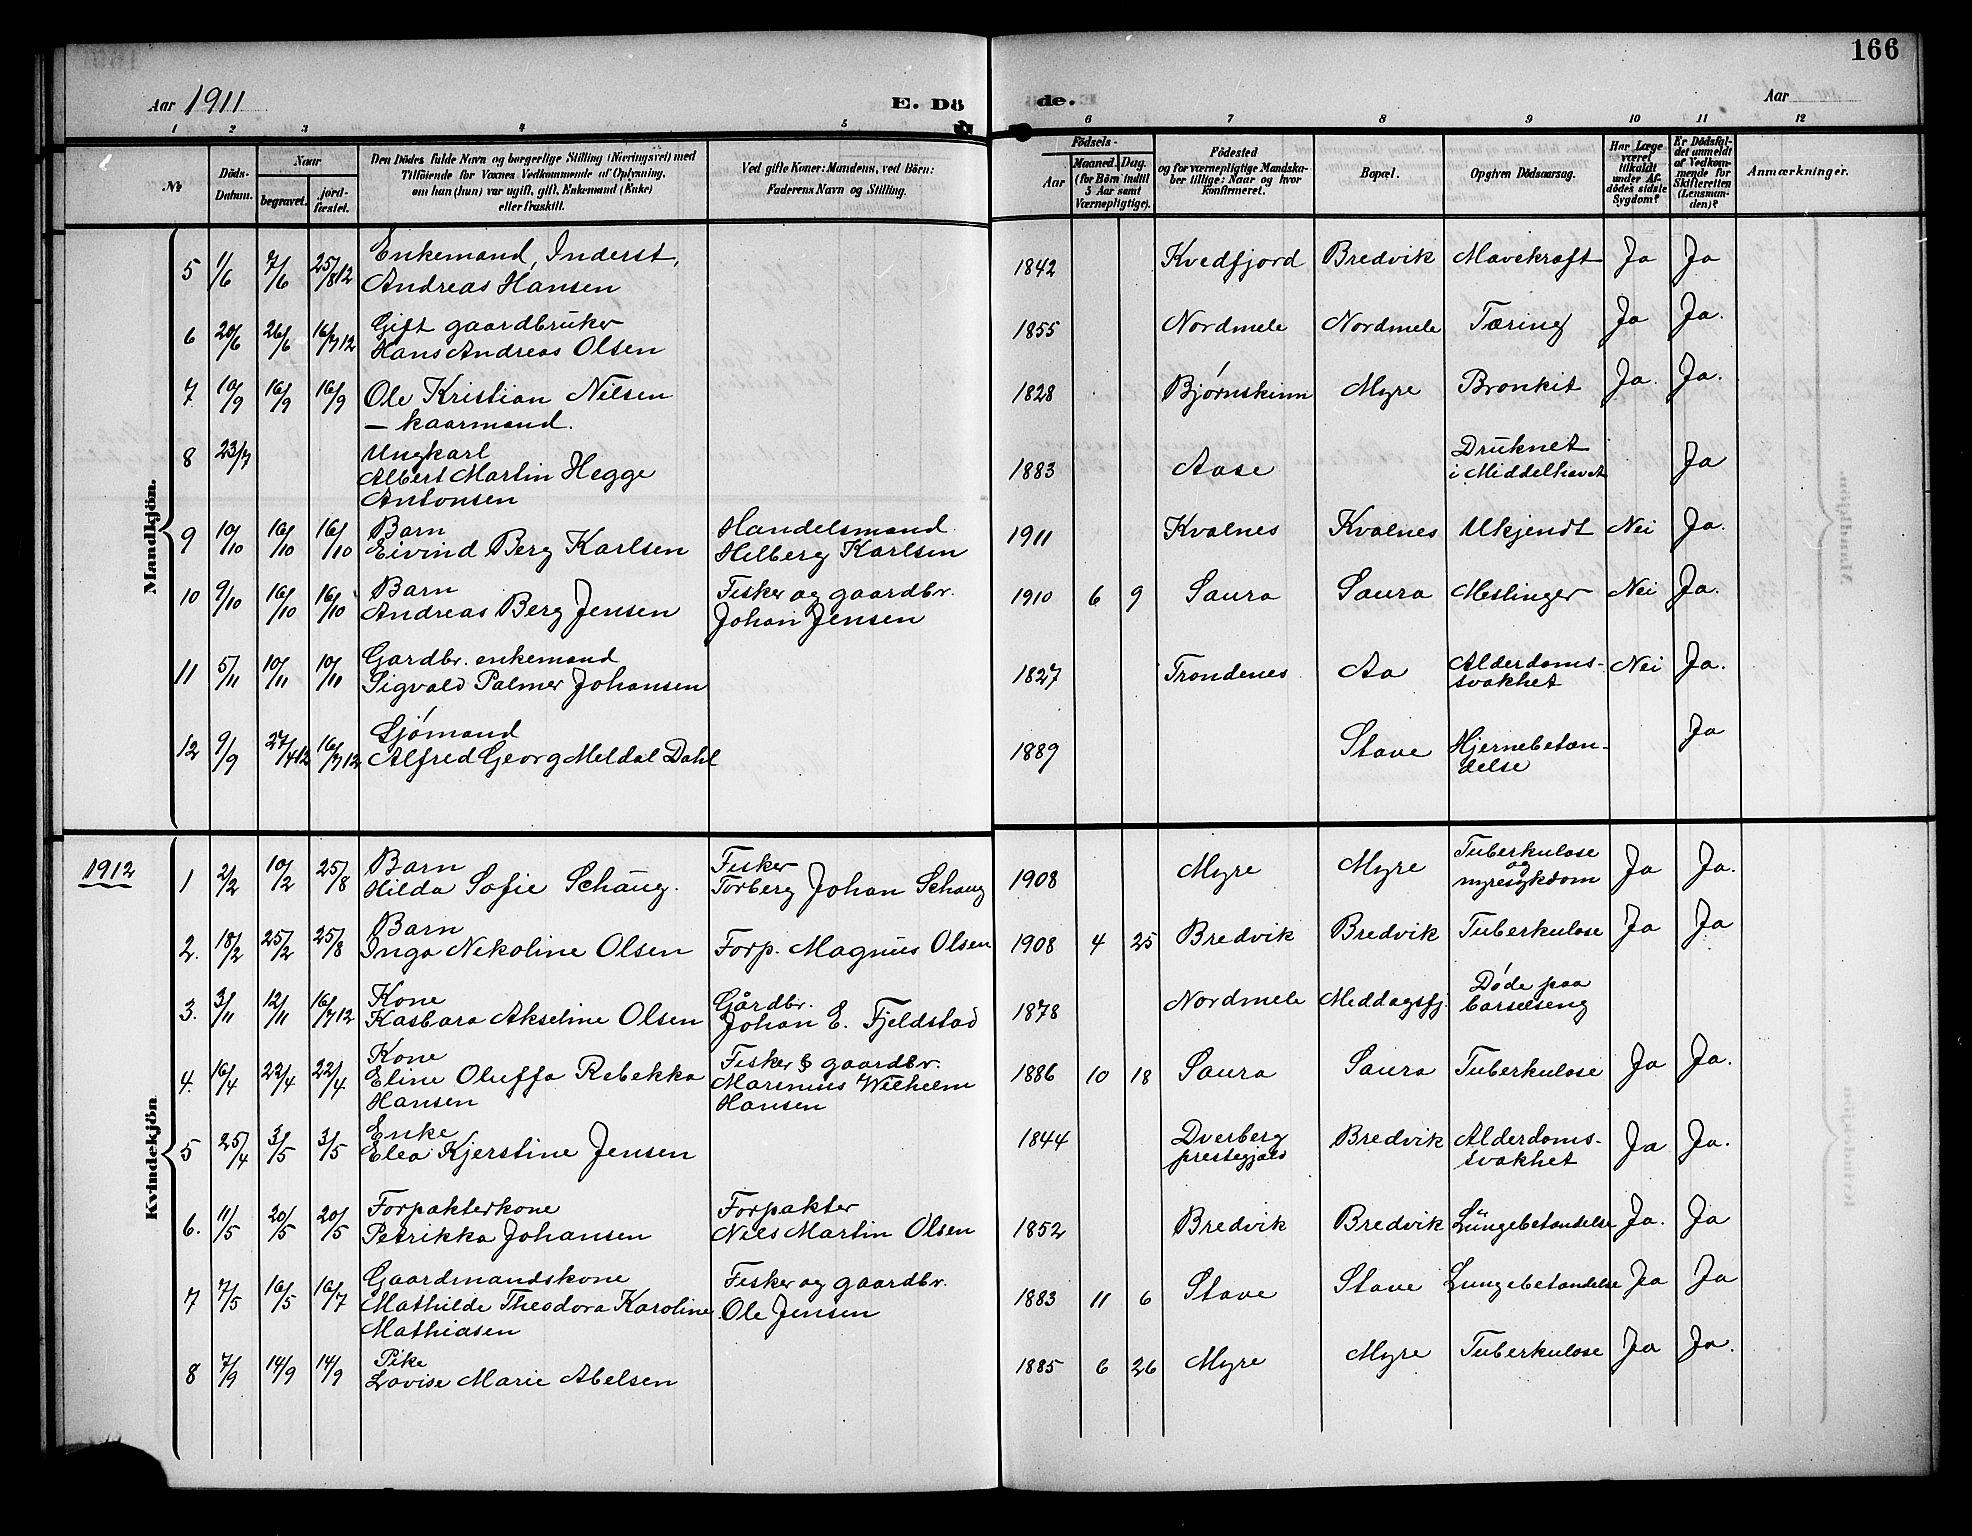 166
Aar 1911
E. Dö
de.
Aar
1 2 3 4 5 6 7 8 9 10 11 12
№
Döds-
Datum.
Naar
begravet.
jord-
fæstet.
Den Dödes fulde Navn og borgerlige Stilling (Næringsvei) med
Tilföiende for Voxnes Vedkommende af Oplysning,
om han (hun) var ugift, gift, Enkemand (Enke)
eller fraskilt.
Ved gifte Koner: Mandens, ved Börn:
Faderens Navn og Stilling.
Födsels-
Aar
Maaned. Dag.
(for Börn indtil
5 Aar samt
Værnepligtige).
Födested
og for værnepligtige Mandska-
ber tillige: Naar og hvor
konfirmeret.
Bopæl.
Opgiven Dödsaarsag.
Har Læge
været
tilkaldt
under Af-
dödes sidste
Sygdom?
Er Dödsfal-
det anmeldt
af Vedkom-
mende for
Skifteretten
(Lensman-
den)?
Anmærkninger.
Mandkjön.
5 11/6 7/6 25/8 12 Enkemand, Inderst, 1842 Kvedfjord Bredvik Mavekræft Ja Ja
Andreas Hansen
6 20/6 26/6 16/7 12 Gift gaardbruker 1855 Nordmele Nordmele Tæring Ja Ja.
Hans Andreas Olsen
7 10/9 16/9 16/9 Ole Kristian Nilsen 1828 Bjørnskinn Myre Bronkit Ja. Ja.
— kaarmand.
8 23/7 Ungkarl 1883 Aase Druknet Ja
Albert Martin Hegge i Middelhavet
Antonsen
9 10/10 16/10 16/10 Barn Handelsmand 1911 Kvalnes Kvalnes Ukjendt Nei Ja.
Eivind Berg Karlsen Hilberg Karlsen
10 9/10 16/10 16/10 Barn Fisker og gaardbr. 1910 6 9 Saura Saura Meslinger Nei Ja.
Andreas Berg Jensen Johan Jensen
11 5/11 10/11 10/11 Gardbr. enkemand 1827 Trondenes Aa Alderdoms- Nei Ja.
Sigvald Palmer Johansen svakhet
12 9/9 27/4 12 16/7 12 Sjømand 1889 Stave Hjernebetæn- Ja
Alfred Georg Meldal Dahl delse
1912
Kvindekjön
1 2/2 10/2 25/8 Barn Fisker 1908 Myre Myre Tuberkulose Ja Ja.
og
Hilda Sofie Schaug. Torberg Johan Schaug nyresykdom
2. 18/2 25/2 25/8 Barn 1908 4 25 Bredvik Bredvik Tuberkulose Ja Ja
Inga Nekoline Olsen Forp. Magnus Olsen
3. 3/11 12/11 16/7 12 Kone Gårdbr. 1878 Nordmele Middagsfj. Døde paa
Kasbara Akseline Olsen Johan E. Fjeldstad barselseng
4. 16/4 22/4 22/4 Kone Fisker & gaardbr. 1886 10 18 Saura Saura Tuberkulose Ja Ja.
Eline Oluffa Rebekka Marinius Wilhelm
Hansen Hansen
5 25/4 3/5 3/5 Enke 1844 Dverberg Bredvik Alderdoms- Ja Ja.
Elea Kjerstine Jensen prestegjæld svakhet
6. 11/5 20/5 20/5 Forpakterkone Forpakter 1852 Bredvik Bredvik Lungebetændelse Ja. Ja
Petrikka Johansen Nils Martin Olsen
7 7/5 16/5 16/7 Gaardmandskone Fisker og gaardbr. 1883 11 6 Stave Stave Lungebetændelse Ja Ja
Mathilde Theodora Karoline Ole Jensen
Mathiasen
8 7/9 14/9 14/9 Pike 1885 6 26 Myre Myre Tuberkulose Ja Ja.
Lovise Marie Abelsen